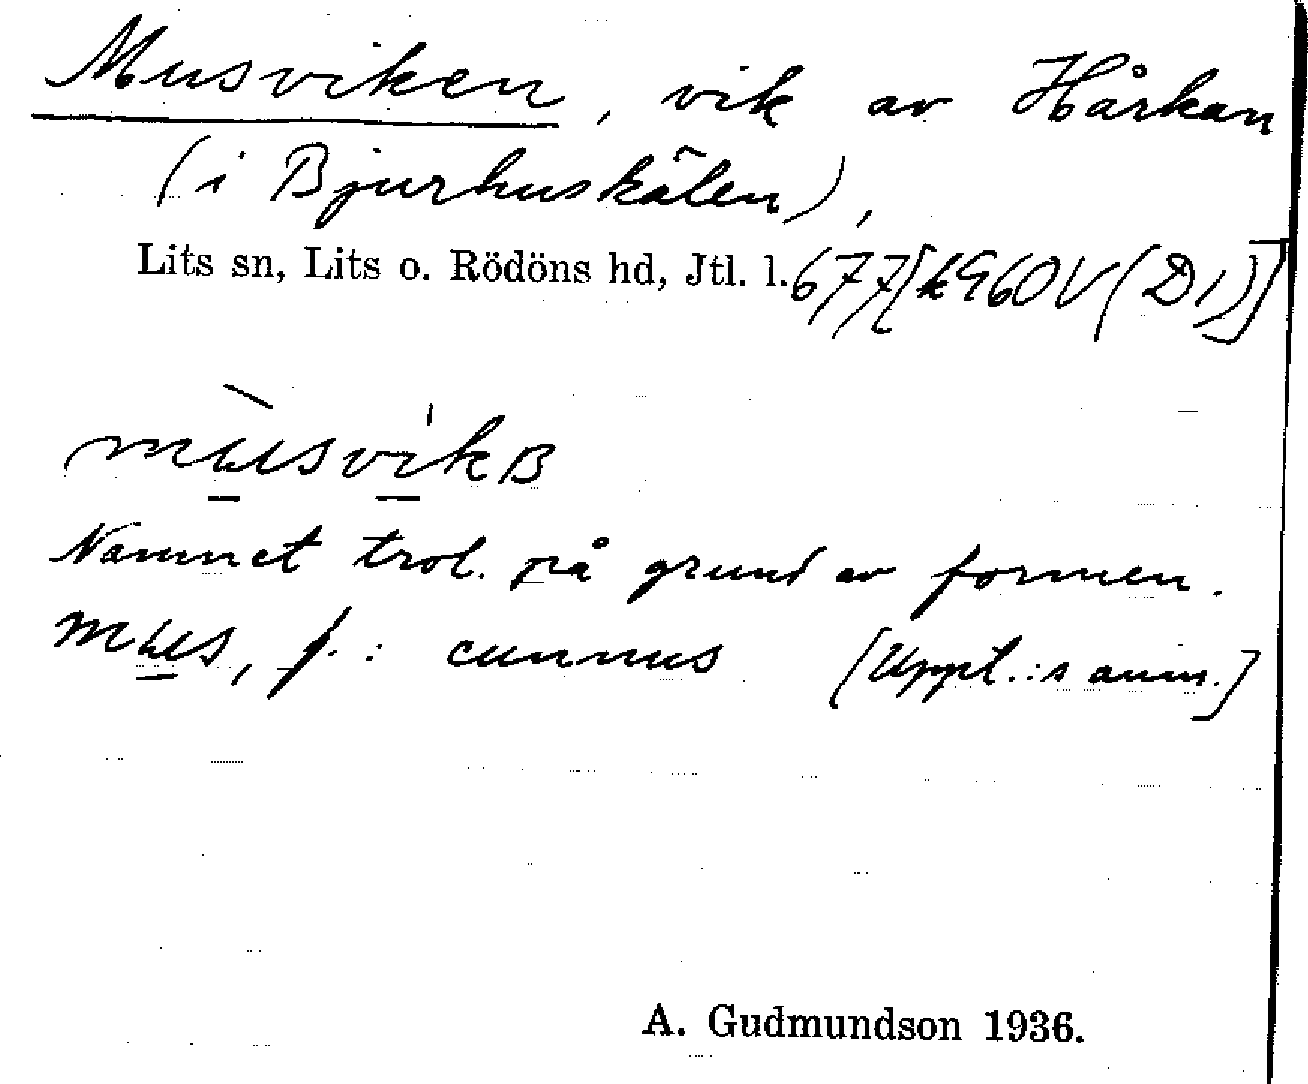 Musviken, vik av Hårkan
(i Bjurhuskälen),
Lits sn, Lits o. Rödöns hd, Jtl. l. 677[k960V(D1)]
mùsvíkB
Namnet trol. på grund av formen.
mus, f.: cunnus [Uppt.:s anm.]
A. Gudmundson 1936.